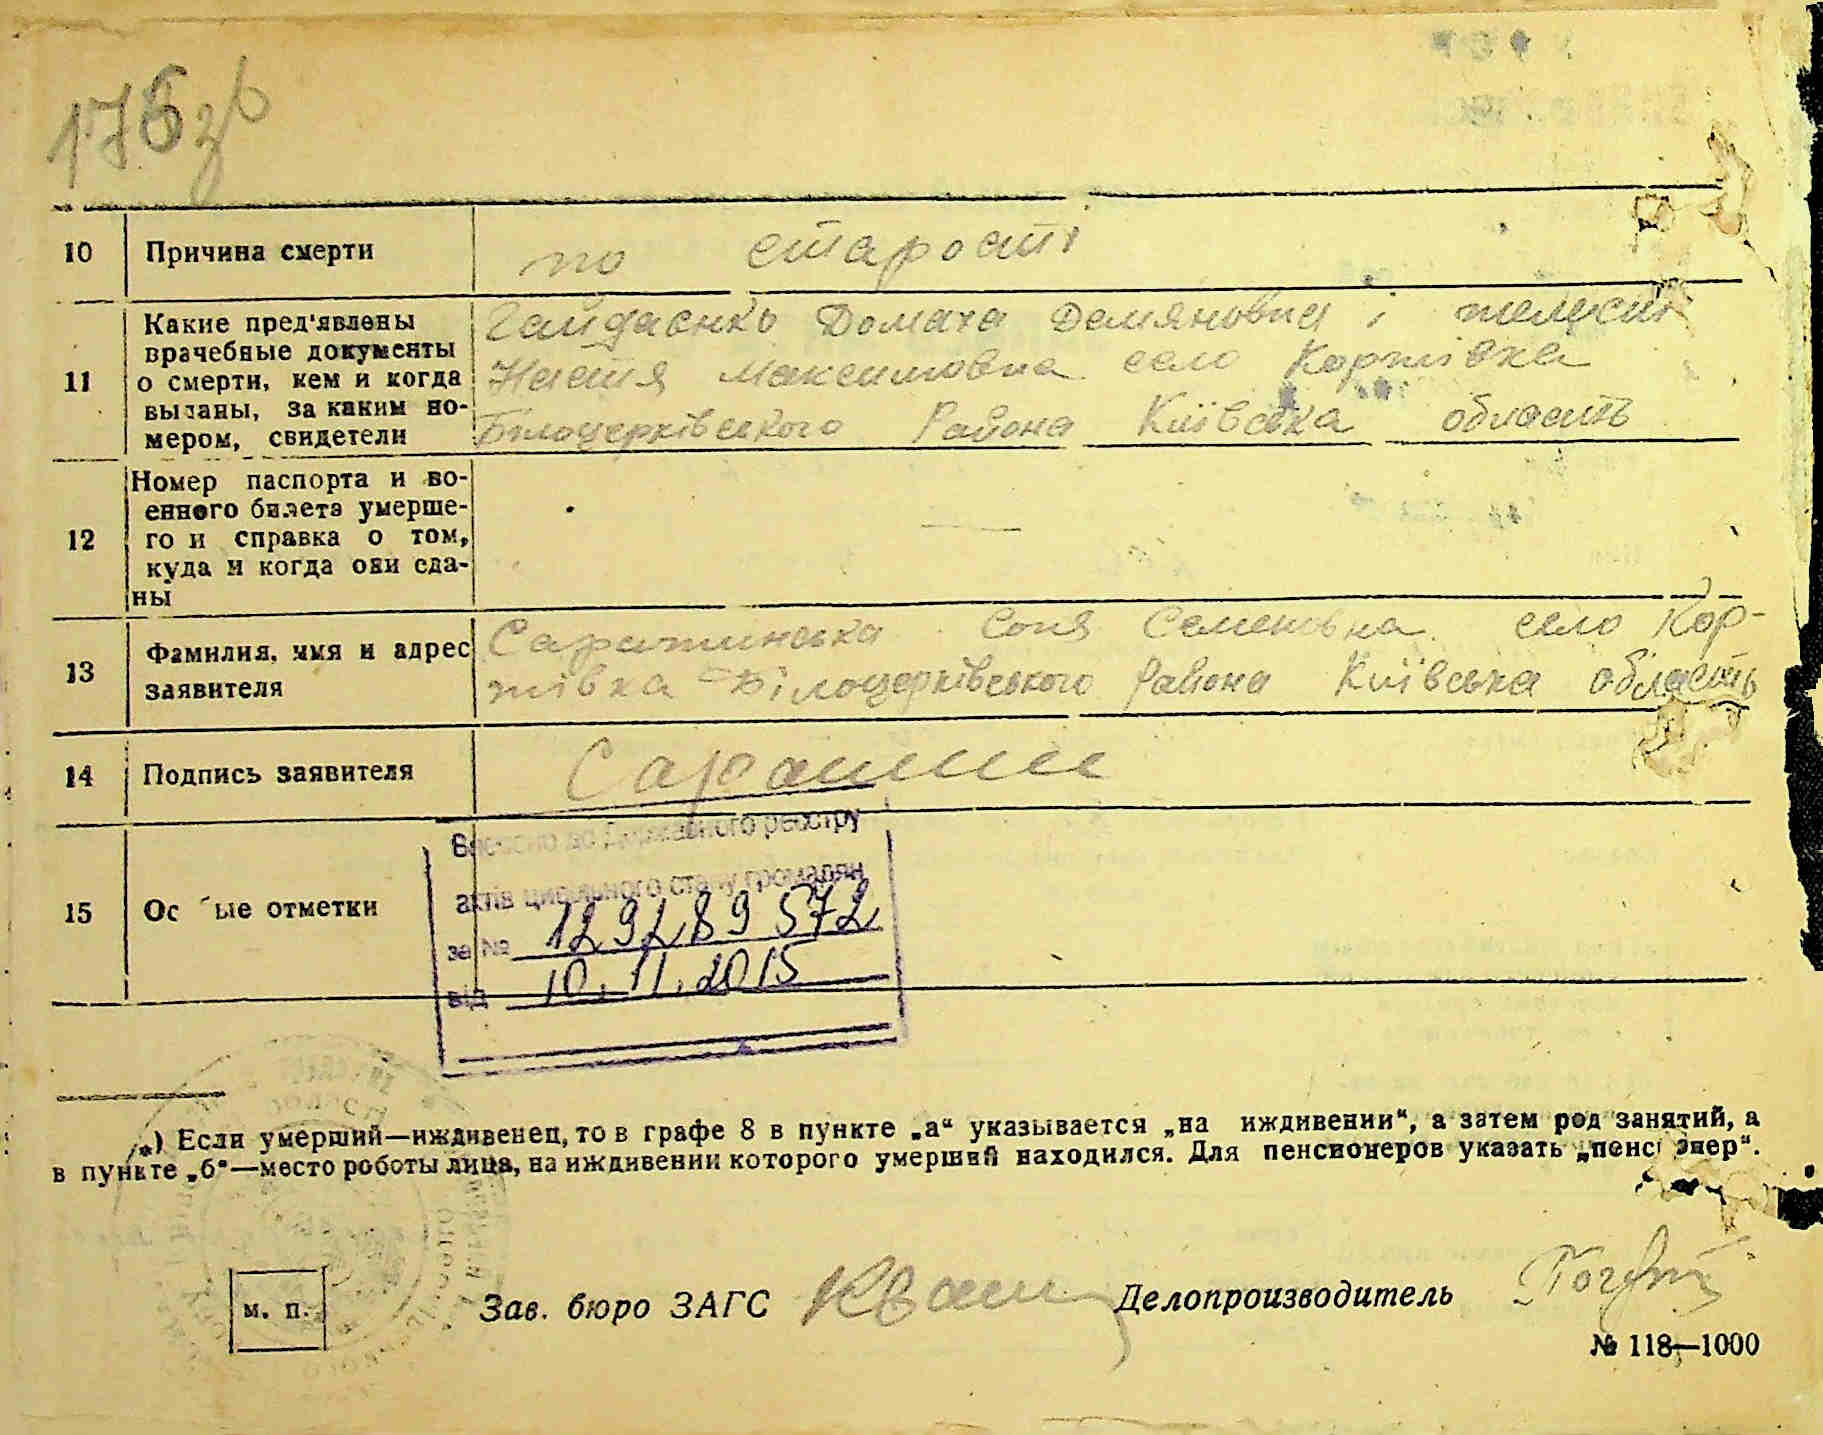 176 зв
10 Причина смерти
по старості
11 Какие пред'явлены
врачебные документы
о смерти, кем и когда
выданы, за каким но-
мером, свидетели
Гайдаєнко Домаха Демяновна і
Настя Максимовна село Коржівка
Білоцерківського Района Київська область
12 Номер паспорта и во-
енного билета умерше-
го и справка о том,
куда и когда они сда-
ны
—
13 Фамилия, имя и адрес
заявителя
Саратинська Соня Семеновна село Кор-
жівка Білоцерківського Района Київська область
14 Подпись заявителя
15 Ос ые отметки
Внесено до Державного реєстру
актів цивільного стану громадян
за № 129289572
від 10.11.2015
*) Если умерший—иждивенец, то в графе 8 в пункте „а“ указывается „на иждивении“, а затем род занятий, а
в пункте „б“—место роботы лица, на иждивении которого умерший находился. Для пенсионеров указать „пенсионер“.
м. п.
Зав. бюро ЗАГС
Делопроизводитель
№ 118—1000